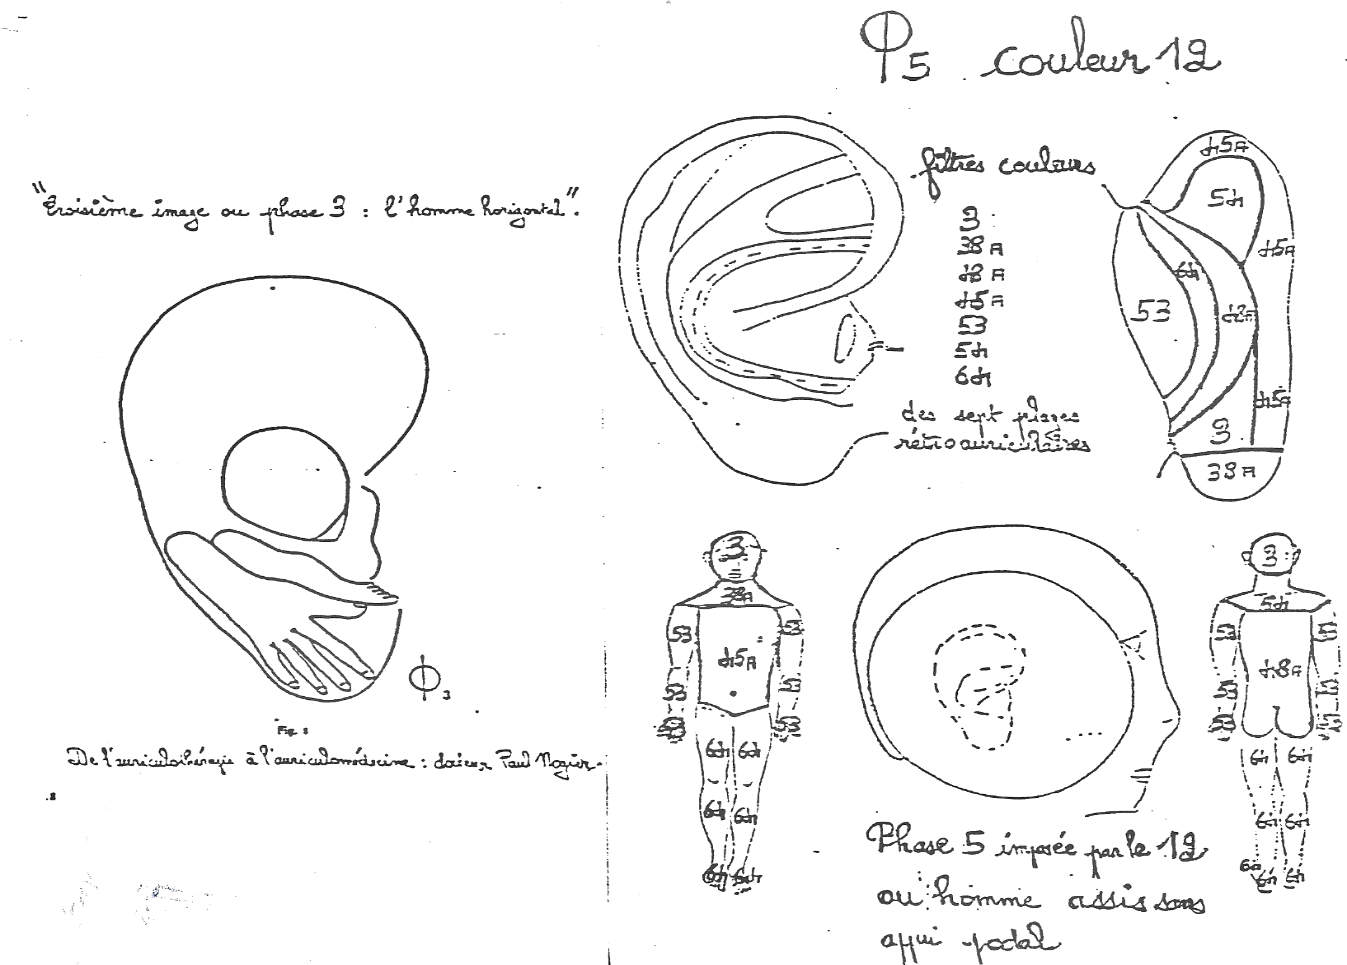 "Troisième image ou phase 3 : l'homme horizontal".
Φ3
Fig.
De l'auriculothérapie à l'auriculomédecine : docteur Paul Nogier.
Φ5 couleur 12
filtres couleurs
3
38A
48A
45A
53
54
64
des sept plages
rétroauriculaires
45A
54
45A
64
53
48A
45A
3
38A
3
38A
53
53
45A
53
53
53
53
64
64
64
64
64
64
3
54
53
53
48A
53
53
53
53
64
64
64
64
64
64
64
Phase 5 imposée par le 12
ou homme assis sans
appui podal